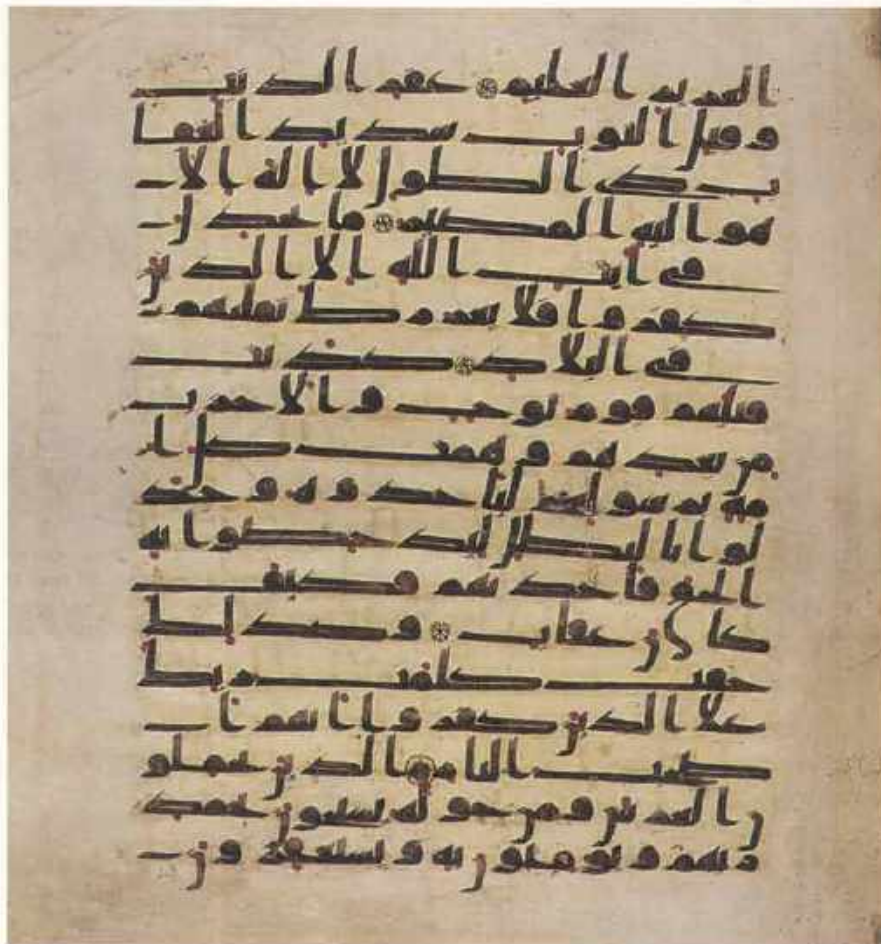 العزيز العليم ۝ غفر الذنب
وقبل التوب شديد العقا
ب ذي الطول لا اله الا
هو اليه المصير ۝ ما يجدل
في ايت الله الا الذين
كفروا فلا يغررك تقلبهم
في البلاد ۝ كذبت
قبلهم قوم نوح والاحزب
من بعدهم وهمت كل ا
مة برسولهم لياخذوه وجد
لوا بالبطل ليدحضوا به
الحق فاخذتهم فكيف
كان عقاب ۝ وكذلك
حقت كلمت ربك
على الذين كفروا انهم ا
صحب النار ۝ الذين يحملو
ن العرش ومن حوله يسبحون بحمد
ربهم ويومنون به ويستغفرون